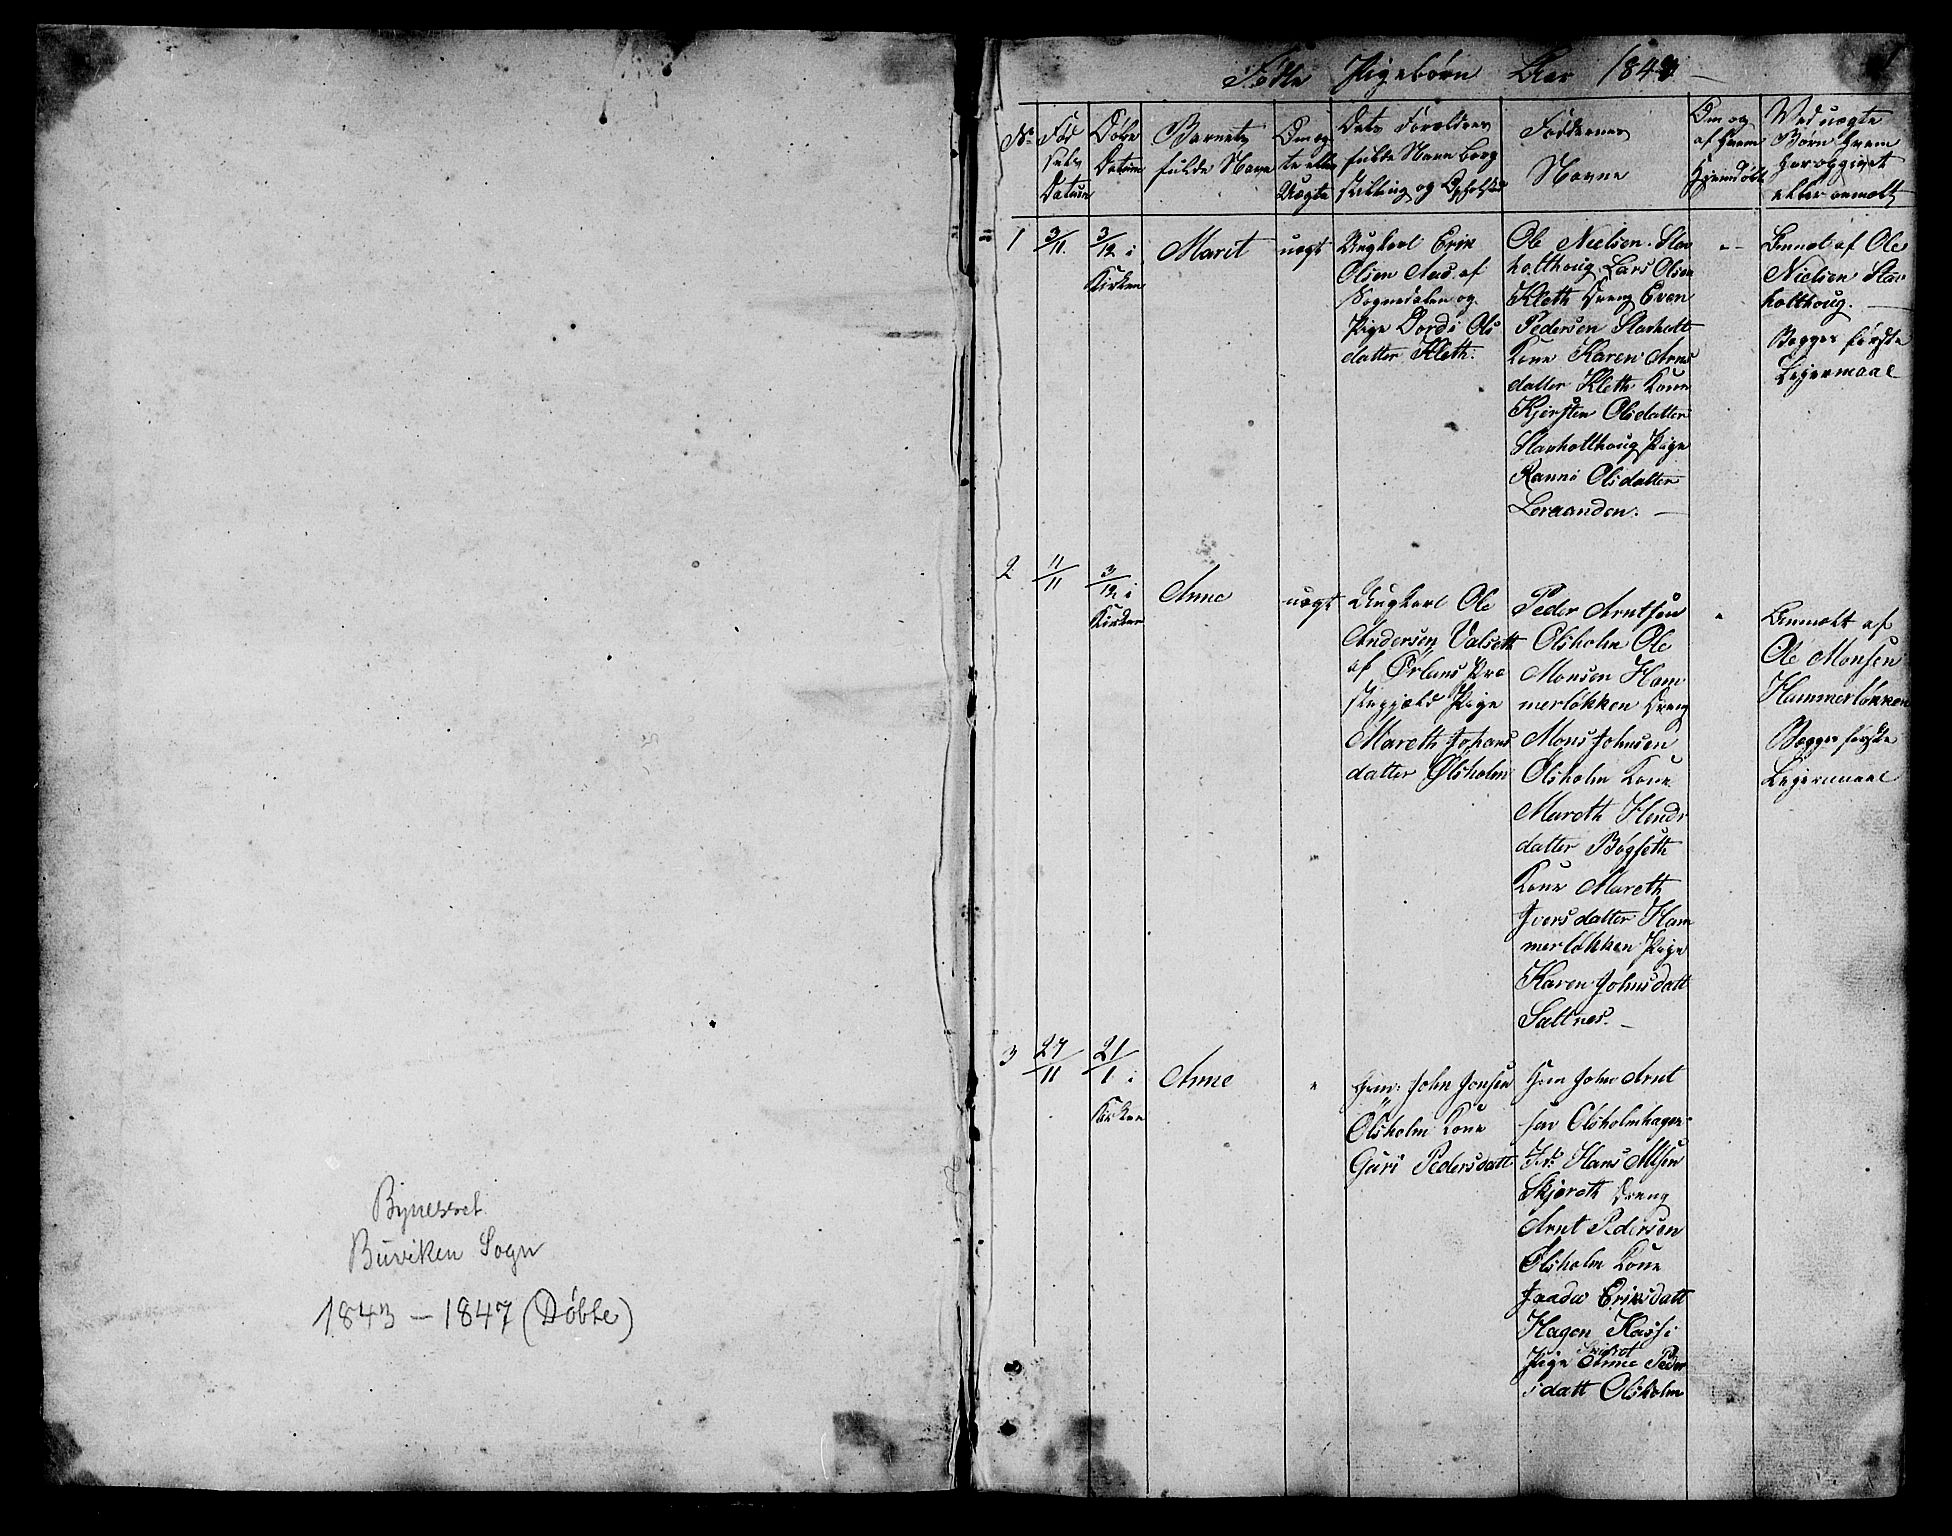 Bynesset
Buviken Sogn
1843 – 1847 (Døbte)
1
Fødte Pigebørn Aar 184
No
Fød
sels
Datum
Døbe
Datum
Barnets
fulde Navn
Om æg
te eller
Uægte
Dets Forældres
fulde Navn borg
stilling og Opholds
Faddernes
Navne
Om og
af hvem
hjemdøbt
Ved uægte
Børn hvem
har opgivet
eller anmeldt
1
3/11
3/12 i
Kirken
Marit
uægt
Ungkarl Erik
Olsen Aas af
Sognedalen og
Pige Dordi Ols
datter Kleth.
Ole Nielsen
holthoug Lars Olsen
Kleth Dreng Even
Pedersen
Kone Karen Arns
datter Kleth Kone
Kjersten Olsdatter
Pige
Ranni Olsdatter
Leraanden. —
Anmeldt af Ole
Nielsen
holthoug. —
Begges første
Leiermaal
2
11/11
3/12 i
Kirken
Anne
uægt
Ungkarl Ole
Andersen Valseth
af Ørlans Præ
stegjæld Pige
Mareth Johans
datter Ølsholm
Peder Arntsen
Olsholm Ole
Monsen Ham
merløkken Dreng
Mons Johnsen
Olsholm Kone
Mareth Hendr
datter Bøgseth
Kone Mareth
Iversdatter Ham
merløkken Pige
Karen Johnsdatt
Saltnes. —
Anmeldt af
Ole Monsen
Hammerløkken
Begges første
Leiermaal
3
27/11
21/1 i
Kirken
Anne
"
John Jonsen
Olsholm Kone
Guri Pedersdatt
John Arnt
sen Olsholmhagen
Hans Olsen
Skjøroth Dreng
Arnt Pedersen
Olsholm Kone
Eriksdatt
Hagen
Pige Anne Peder
sdatt Olsholm